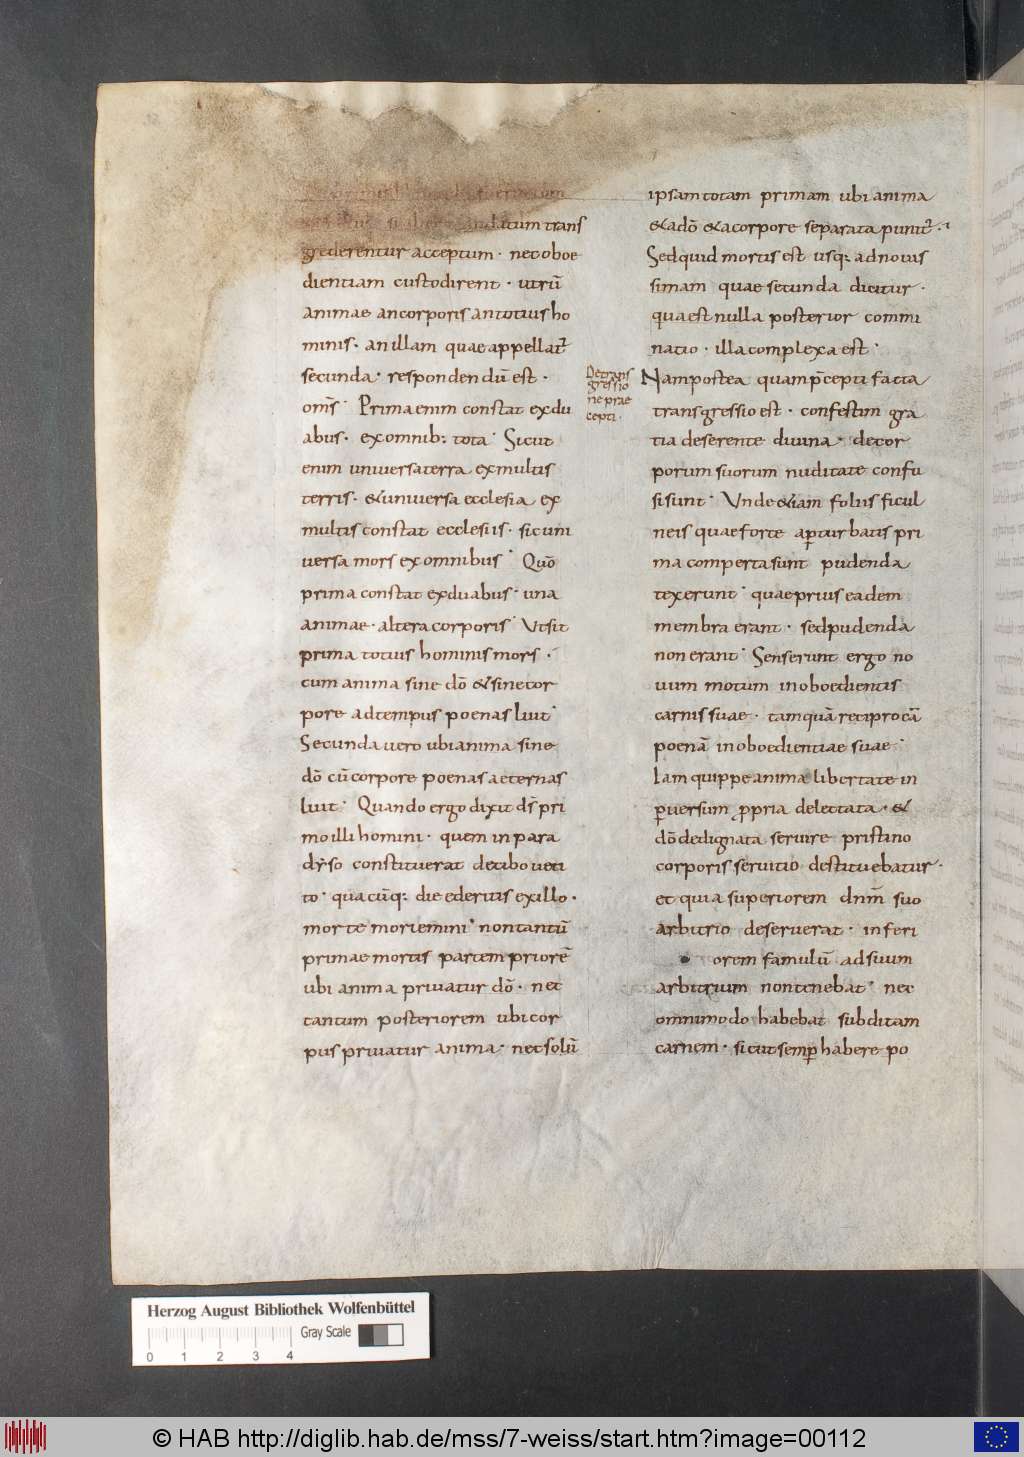 mandatum trans
grederentur acceptum · nec oboe
dientiam custodirent · utrū
animae an corporis an totius ho
minis · an illam quae appellat᷑
secunda · respondendū est ·
om̄s · Prima enim constat ex du
abus · ex omnib: tota · Sicut
enim universa terra ex multis
terris · & universa ecclesia ex
multis constat ecclesiis · sic uni
versa mors ex omnibus · Quō
prima constat ex duabus · una
animae · altera corporis · Ut sit
prima totius hominis mors ·
cum anima sine dō & sine cor
pore ad tempus poenas luit ·
Secunda vero ubi anima sine
dō cū corpore poenas aeternas
luit · Quando ergo dixit d̄s pri
mo illi homini · quem in para
dyso constituerat de cibo veti
to · quacūq: die ederitis ex illo ·
morte moriemini · non tantū
primae mortis partem priorē
ubi anima privatur dō · nec
tantum posteriorem ubi cor
pus privatur anima · nec solū
De trans
gressio
ne prae
cepti ·
ipsam totam primam ubi anima
& a dō & a corpore separata punit᷑ ·
Sed quid mortis est usq: ad novis
simam quae secunda dicitur ·
qua est nulla posterior commi
natio · illa complexa est ·
Nam postea quam p̄cepti facta
transgressio est · confestim gra
tia deserente divina · de cor
porum suorum nuditate confu
si sunt · Unde &iam foliis ficul
neis quae forte a ꝑturbatis pri
ma comperta sunt pudenda
texerunt · quae prius eadem
membra erant · sed pudenda
non erant · Senserunt ergo no
vum motum inoboedientis
carnis suae · tamquā reciprocā
poenā inoboedientiae suae ·
Iam quippe anima libertate in
ꝑversum ꝓpria delectata · &
dō dedignata servire pristino
corporis servitio destituebatur ·
et quia superiorem dn̄m suo
arbitrio deseruerat · inferi
orem famulū ad suum
arbitrium non tenebat · nec
omnimodo habebat subditam
carnem · sicut semꝑ habere po
Herzog August Bibliothek Wolfenbüttel
Gray Scale
0 1 2 3 4
© HAB http://diglib.hab.de/mss/7-weiss/start.htm?image=00112